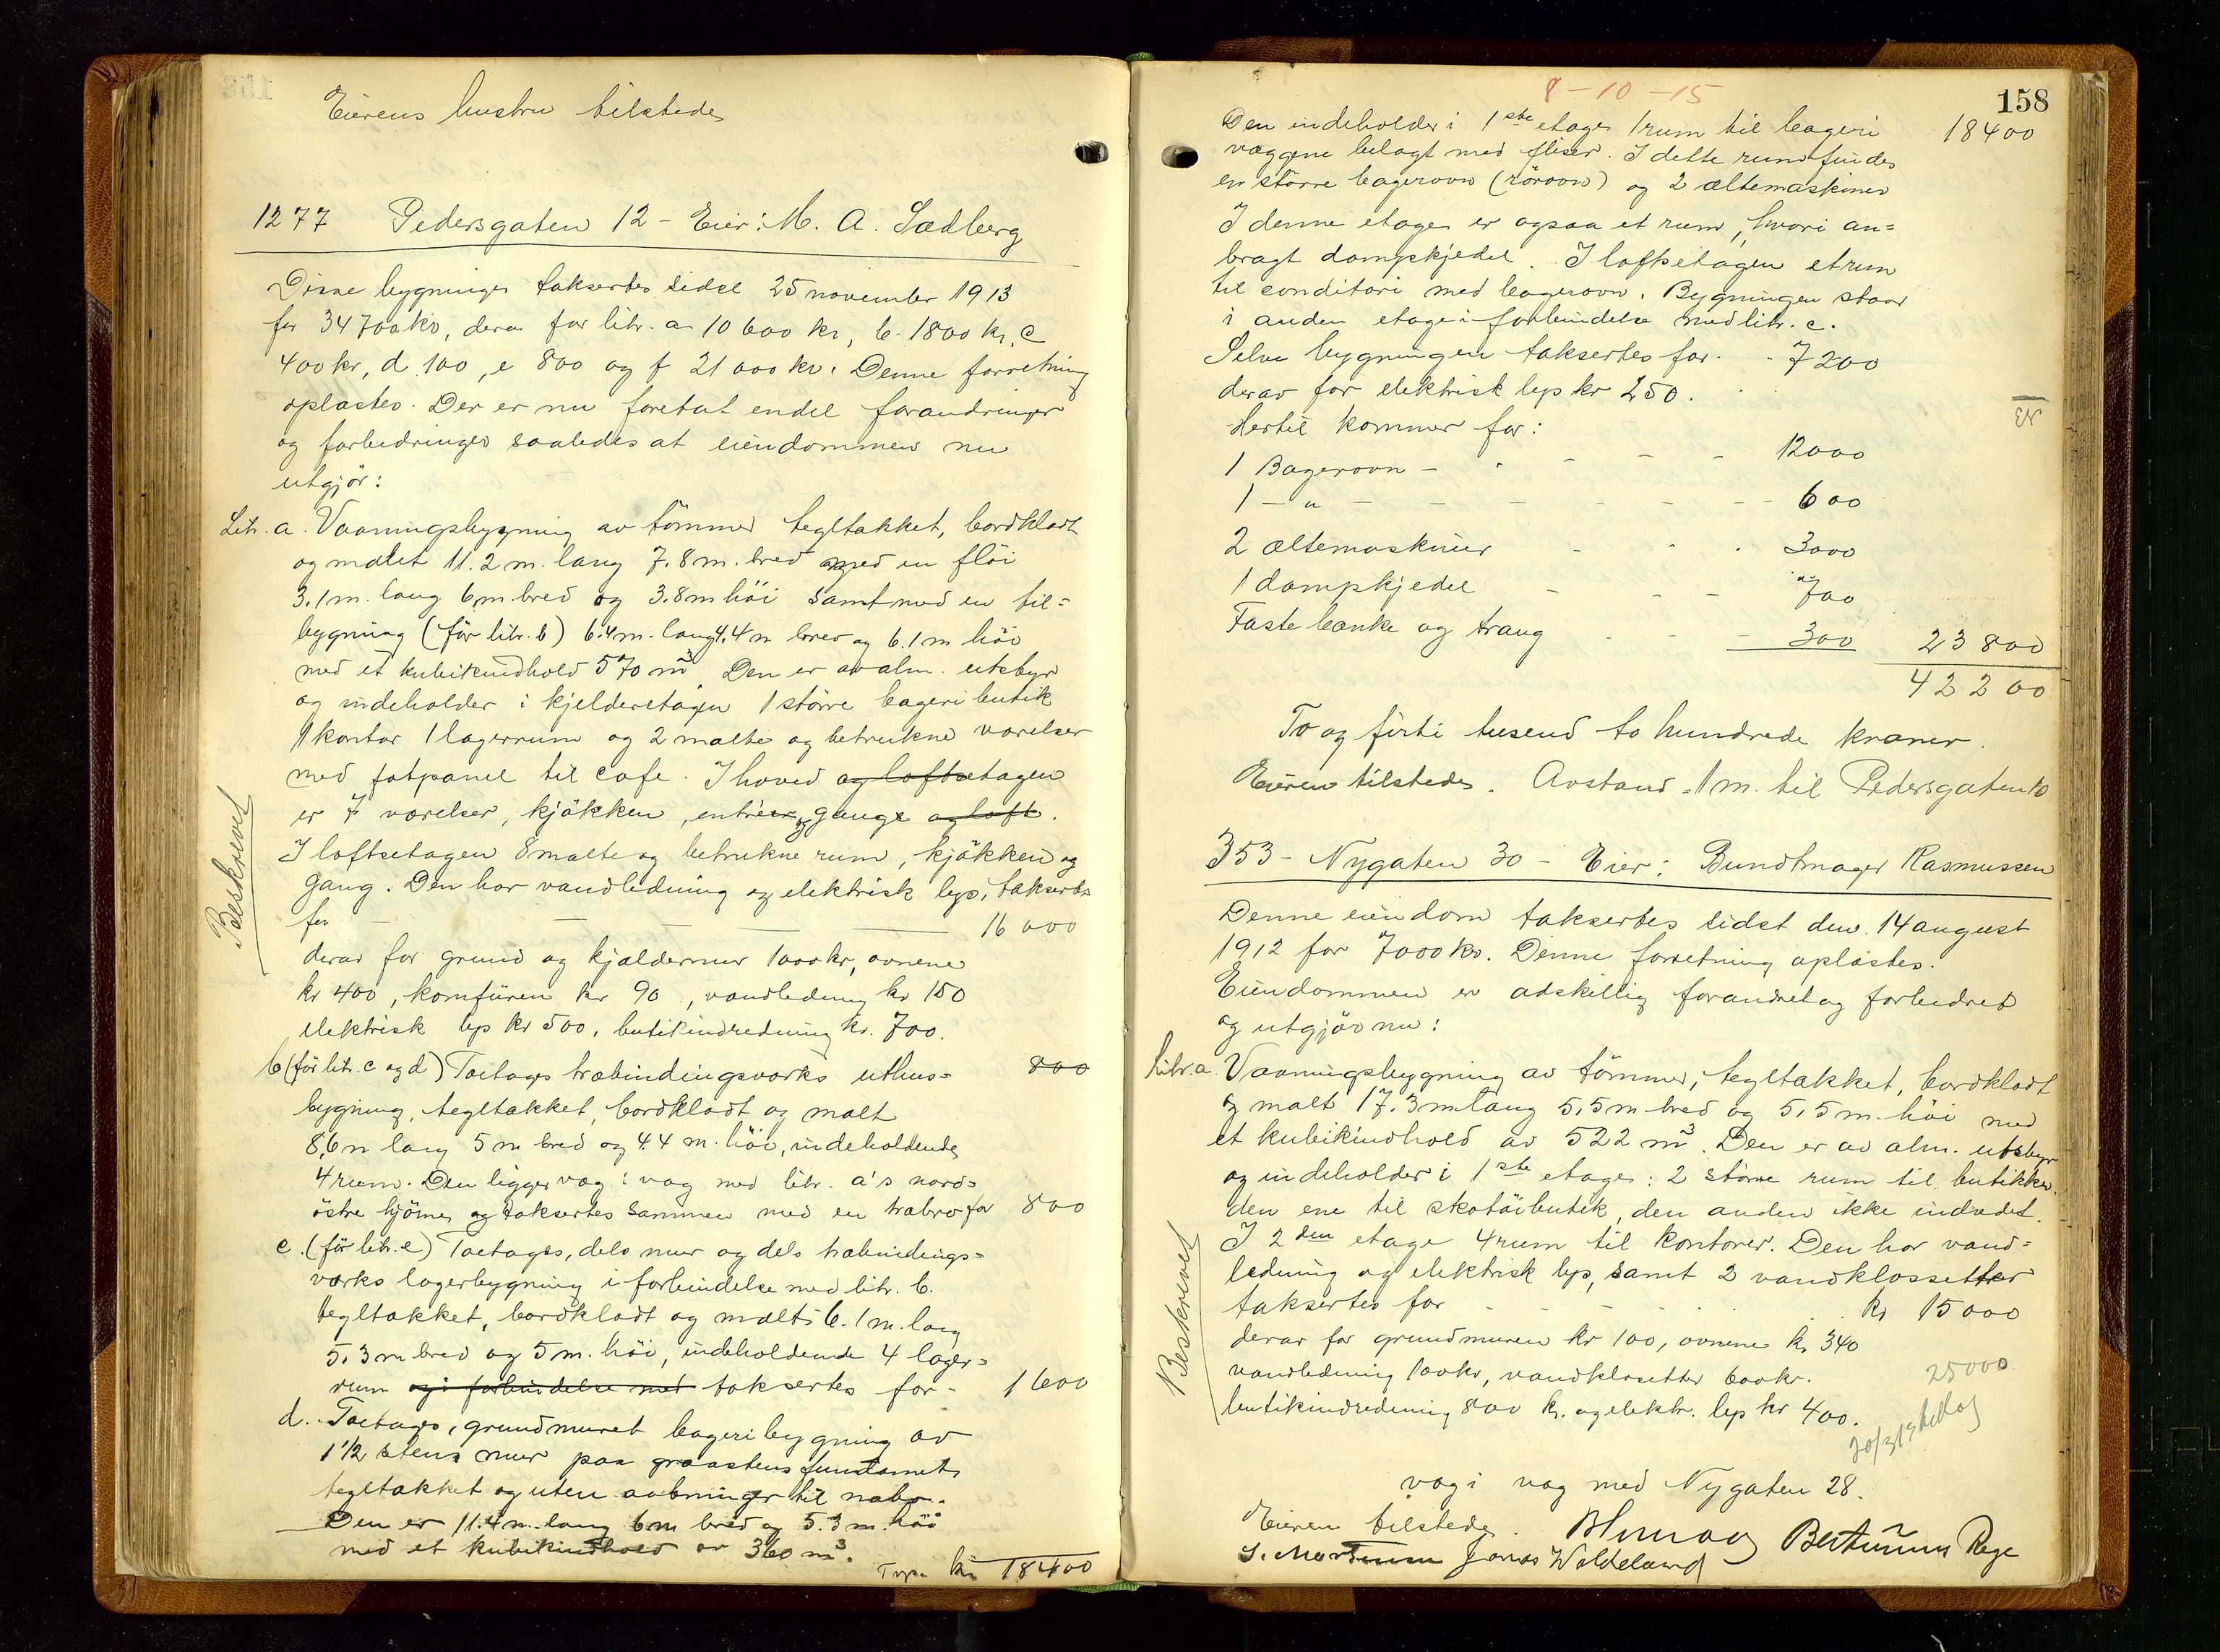 Eierens hustru tilstede
1277 Pedersgaten 12 - Eier: M. A. Sædberg
Disse bygninger taksertes sidst 25 november 1913
for 34700 kr, derav for litr. a 10600 kr, b. 1800 kr, c
400 kr, d 100, e 800 og f 21000 kr. Denne forretning
oplæstes. Der er nu foretat endel forandringer
og forbedringer saaledes at eiendommen nu
utgjör:
Litr. a. Vaaningsbygning av tömmer tegltakket, bordklædt
og malet 11.2 m. lang 7.8 m. bred med en flöi
3.1 m. lang 6 m. bred og 3.8 m höi samt med en til=
bygning (för litr. b) 6.4 m. lang 4.4 m bred og 6.1 m höi
med et kubikindhold 570 m³. Den er av alm. utstyr
og indeholder i kjelderetagen 1 större bageributik
1 kontor 1 lagerrum og 2 malte og betrukne værelser
med fotpanel til cafe. I hoved og loftsetagen
er 7 værelser, kjökken, entrèer, og gange og loft.
I loftsetagen 8 malte og betrukne rum, kjökken og
gang. Den har vandledning og elektrisk lys, taksertes
for — — — — 16000
derav for grund og kjældermur 1000 kr, ovnene
kr 400, komfüren kr 90, vandledning kr 150
elektrisk lys kr 500, butikindredning kr. 700.
b (för litr. c og d) Toetages træbindingsverks uthus= 800
bygning, tegltakket, bordklædt og malt
8,6 m lang 5 m bred og 4.4 m. höi, indeholdende
4 rum. Den ligger væg i væg med litr. a's nord=
östre hjörne og taksertes sammen med en træbro for 800
c. (för litr. e) Toetages, dels mur og dels træbindings=
værks lagerbygning i forbindelse med litr. b.
tegltakket, bordklædt og malt 6.1 m. lang
5.3 m bred og 5 m. höi, indeholdende 4 lager=
rum og i forbindelse med taksertes for - 1600
d. Toetages, grundmuret bageribygning av
1 1/2 stens mur paa graastens fundament
tegltakket og uten aabninger til nabo.
Den er 11.4 m. lang 6 m bred og 5.3 m. höi
med et kubikindhold av 360 m³.
Trp. kr 18400
Beskrevet
8-10-15
158
Den indeholder i 1ste etage 1 rum til bageri 18400
væggene belagt med fliser. I dette rum findes
en större bagerovn (rörovn) og 2 æltemaskiner
I denne etage er ogsaa et rum, hvori an=
bragt dampkjedel. I loftsetagen et rum
til conditori med bagerovn. Bygningen staar
i anden etage i forbindelse med litr. c.
Selve bygningen taksertes for - 7200
derav for elektrisk lys kr 250.
Hertil kommer for:
1 Bagerovn - - - - - 12000
1 - " - - - - - - 600
2 æltemaskiner - - - 3000
1 dampkjedel - - - 700
Faste bænke og traug - - 300 23800
42200
To og firti tusend to hundrede kroner.
Eieren tilstede. Avstand 1 m. til Pedersgaten 10
353 - Nygaten 30 - Eier: Bundtmager Rasmussen
Denne eiendom taksertes sidst den 14 august
1912 for 7000 kr. Denne forretning oplæstes.
Eiendommen er adskillig forandret og forbedret
og utgjör nu:
Litr. a Vaaningsbygning av tömmer, tegltakket, bordklædt
og malt 17.3 m lang 5,5 m bred og 5,5 m. höi med
et kubikindhold av 522 m³. Den er av alm. utstyr
og indeholder i 1ste etage: 2 större rum til butikker.
den ene til skotöibutik, den anden ikke indredet.
I 2den etage 4 rum til kontorer. Den har vand=
ledning og elektrisk lys, samt 2 vandklossetter
taksertes for - - - - kr 15000
derav for grundmuren kr 100, ovnene kr 340
vandledning 100 kr, vandklosetter 600 kr.
25000
butikindredning 800 kr. og elektr. lys kr 400.
Beskrevet
væg i væg med Nygaten 28.
Eieren tilstede. Bertinius Rege
S. Mortensen Jonas Waldeland